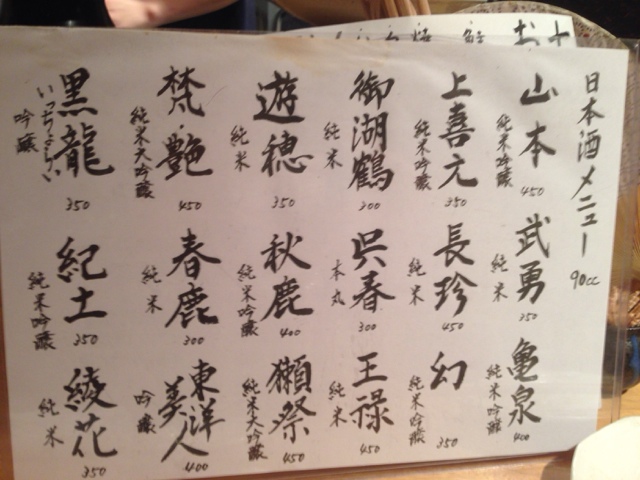 日本酒メニュー 90cc
山本
純米吟醸
450
武勇
純米
350
亀泉
純米吟醸
400
上喜元
純米吟醸
350
長珍
純米
450
幻
純米吟醸
350
御湖鶴
純米
300
呉春
本丸
300
王祿
純米
450
遊穂
純米
350
秋鹿
純米吟醸
400
獺祭
純米大吟醸
450
梵艶
純米大吟醸
450
春鹿
純米
300
東洋美人
吟醸
400
黒龍
いっちょらい
吟醸
350
紀土
純米吟醸
350
綾花
純米
350